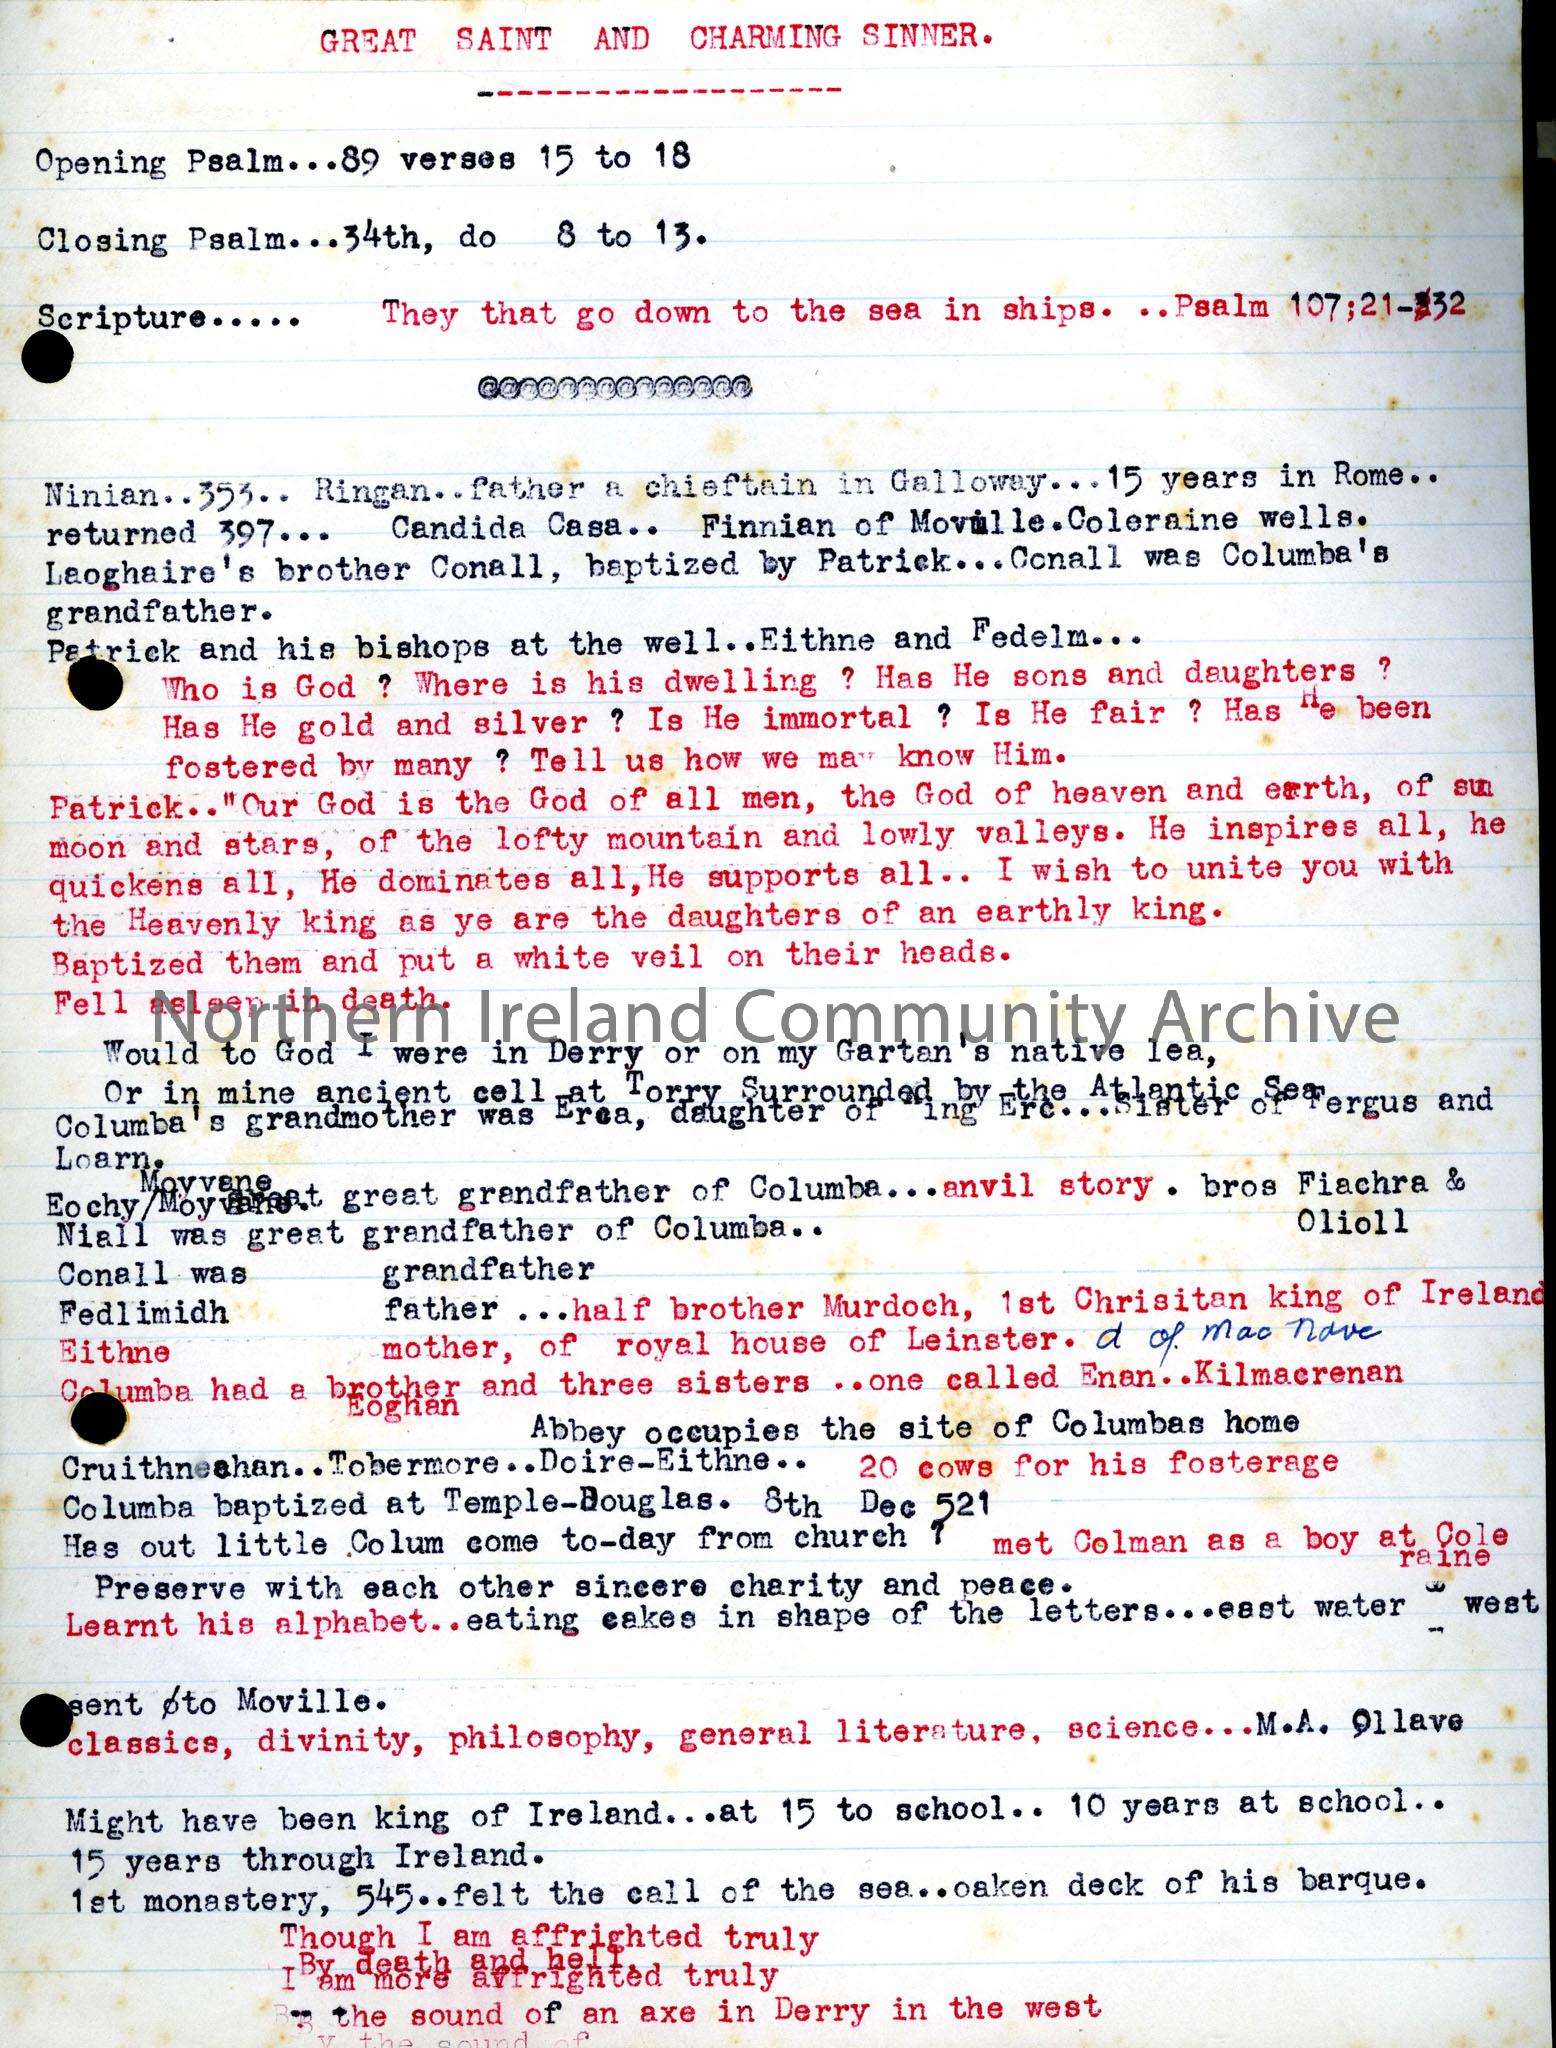 GREAT SAINT AND CHARMING SINNER.
-------------------
Opening Psalm...89 verses 15 to 18
Closing Psalm...34th, do 8 to 13.
Scripture..... They that go down to the sea in ships. ..Psalm 107;21-32
@@@@@@@@@@@@@@
Ninian..353.. Ringan..father a chieftain in Galloway...15 years in Rome..
returned 397... Candida Casa.. Finnian of Moville.Coleraine wells.
Laoghaire's brother Conall, baptized by Patrick...Conall was Columba's
grandfather.
Patrick and his bishops at the well..Eithne and Fedelm...
Who is God ? Where is his dwelling ? Has He sons and daughters ?
Has He gold and silver ? Is He immortal ? Is He fair ? Has He been
fostered by many ? Tell us how we may know Him.
Patrick.."Our God is the God of all men, the God of heaven and earth, of sun
moon and stars, of the lofty mountain and lowly valleys. He inspires all, he
quickens all, He dominates all,He supports all.. I wish to unite you with
the Heavenly king as ye are the daughters of an earthly king.
Baptized them and put a white veil on their heads.
Fell asleep in death.
Northern Ireland Community Archive
Would to God I were in Derry or on my Gartan's native lea,
Or in mine ancient cell at Torry Surrounded by the Atlantic Sea
Columba's grandmother was Erca, daughter of King Erc...Sister of Fergus and
Loarn.
Moyvane
Eochy/Moyvane. great great grandfather of Columba...anvil story . bros Fiachra &
Olioll
Niall was great grandfather of Columba..
Conall was grandfather
Fedlimidh father ...half brother Murdoch, 1st Chrisitan king of Ireland
Eithne mother, of royal house of Leinster. d of Mac Nave
Columba had a brother and three sisters ..one called Enan..Kilmacrenan
Eoghan
Abbey occupies the site of Columbas home
Cruithneahan..Tobermore..Doire-Eithne.. 20 cows for his fosterage
Columba baptized at Temple-Douglas. 8th Dec 521
Has out little Colum come to-day from church ? met Colman as a boy at Cole
raine
Preserve with each other sincere charity and peace.
Learnt his alphabet..eating cakes in shape of the letters...east water west
sent to Moville.
classics, divinity, philosophy, general literature, science...M.A. Ollave
Might have been king of Ireland...at 15 to school.. 10 years at school..
15 years through Ireland.
1st monastery, 545..felt the call of the sea..oaken deck of his barque.
Though I am affrighted truly
By death and hell,
I am more affrighted truly
By the sound of an axe in Derry in the west
the sound of